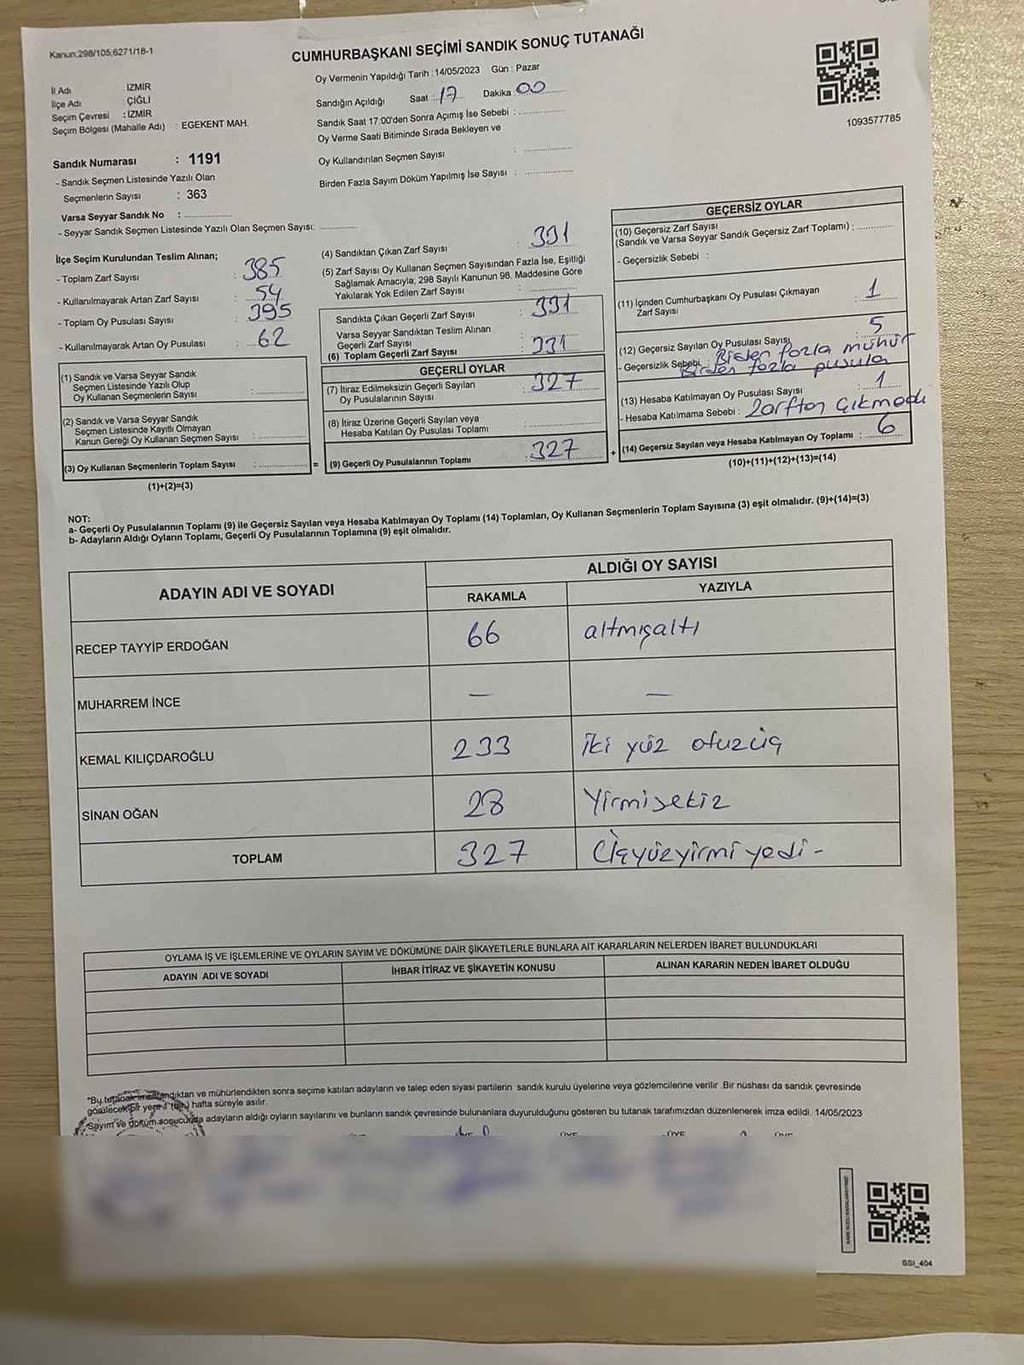 Kanun:298/105;6271/18-1
CUMHURBAŞKANI SEÇİMİ SANDIK SONUÇ TUTANAĞI
Oy Vermenin Yapıldığı Tarih : 14/05/2023 Gün : Pazar
İl Adı : İZMİR
İlçe Adı : ÇİĞLİ
Seçim Çevresi : İZMİR
Seçim Bölgesi (Mahalle Adı) : EGEKENT MAH.
Sandığın Açıldığı Saat : 17 Dakika : 00
Sandık Saat 17:00'den Sonra Açılmış İse Sebebi :
Oy Verme Saati Bitiminde Sırada Bekleyen ve
Oy Kullandırılan Seçmen Sayısı :
Birden Fazla Sayım Döküm Yapılmış İse Sayısı :
1093577785
Sandık Numarası : 1191
- Sandık Seçmen Listesinde Yazılı Olan
Seçmenlerin Sayısı : 363
Varsa Seyyar Sandık No :
- Seyyar Sandık Seçmen Listesinde Yazılı Olan Seçmen Sayısı:
İlçe Seçim Kurulundan Teslim Alınan;
- Toplam Zarf Sayısı : 385
- Kullanılmayarak Artan Zarf Sayısı : 54
- Toplam Oy Pusulası Sayısı : 395
- Kullanılmayarak Artan Oy Pusulası : 62
(1) Sandık ve Varsa Seyyar Sandık
Seçmen Listesinde Yazılı Olup
Oy Kullanan Seçmenlerin Sayısı :
(2) Sandık ve Varsa Seyyar Sandık
Seçmen Listesinde Kayıtlı Olmayan
Kanun Gereği Oy Kullanan Seçmen Sayısı :
(3) Oy Kullanan Seçmenlerin Toplam Sayısı :
(1)+(2)=(3)
(4) Sandıktan Çıkan Zarf Sayısı : 331
(5) Zarf Sayısı Oy Kullanan Seçmen Sayısından Fazla İse, Eşitliği
Sağlamak Amacıyla; 298 Sayılı Kanunun 98. Maddesine Göre
Yakılarak Yok Edilen Zarf Sayısı :
Sandıkta Çıkan Geçerli Zarf Sayısı : 331
Varsa Seyyar Sandıktan Teslim Alınan
Geçerli Zarf Sayısı :
(6) Toplam Geçerli Zarf Sayısı : 331
GEÇERLİ OYLAR
(7) İtiraz Edilmeksizin Geçerli Sayılan
Oy Pusulalarının Sayısı : 327
(8) İtiraz Üzerine Geçerli Sayılan veya
Hesaba Katılan Oy Pusulası Toplamı :
= (9) Geçerli Oy Pusulalarının Toplamı : 327
GEÇERSİZ OYLAR
(10) Geçersiz Zarf Sayısı
(Sandık ve Varsa Seyyar Sandık Geçersiz Zarf Toplamı) :
- Geçersizlik Sebebi :
(11) İçinden Cumhurbaşkanı Oy Pusulası Çıkmayan
Zarf Sayısı : 1
(12) Geçersiz Sayılan Oy Pusulası Sayısı : 5
- Geçersizlik Sebebi : Birden fazla mühür
Birden fazla pusula
(13) Hesaba Katılmayan Oy Pusulası Sayısı : 1
- Hesaba Katılmama Sebebi : Zarftan çıkmadı
+ (14) Geçersiz Sayılan veya Hesaba Katılmayan Oy Toplamı : 6
(10)+(11)+(12)+(13)=(14)
NOT:
a- Geçerli Oy Pusulalarının Toplamı (9) ile Geçersiz Sayılan veya Hesaba Katılmayan Oy Toplamı (14) Toplamları, Oy Kullanan Seçmenlerin Toplam Sayısına (3) eşit olmalıdır. (9)+(14)=(3)
b- Adayların Aldığı Oyların Toplamı, Geçerli Oy Pusulalarının Toplamına (9) eşit olmalıdır.
ADAYIN ADI VE SOYADI
ALDIĞI OY SAYISI
RAKAMLA YAZIYLA
RECEP TAYYİP ERDOĞAN 66 altmışaltı
MUHARREM İNCE — —
KEMAL KILIÇDAROĞLU 233 iki yüz otuzüç
SİNAN OĞAN 28 Yirmisekiz
TOPLAM 327 Üçyüzyirmi yedi -
OYLAMA İŞ VE İŞLEMLERİNE VE OYLARIN SAYIM VE DÖKÜMÜNE DAİR ŞİKAYETLERLE BUNLARA AİT KARARLARIN NELERDEN İBARET BULUNDUKLARI
ADAYIN ADI VE SOYADI İHBAR İTİRAZ VE ŞİKAYETİN KONUSU ALINAN KARARIN NEDEN İBARET OLDUĞU
*Bu tutanak imzalandıktan ve mühürlendikten sonra seçime katılan adayların ve talep eden siyasi partilerin sandık kurulu üyelerine veya gözlemcilerine verilir .Bir nüshası da sandık çevresinde
görülecek bir yere 1 (bir) hafta süreyle asılır.
*Sayım ve döküm sonucunda adayların aldığı oyların sayılarını ve bunların sandık çevresinde bulunanlara duyurulduğunu gösteren bu tutanak tarafımızdan düzenlenerek imza edildi. 14/05/2023
SSI_404